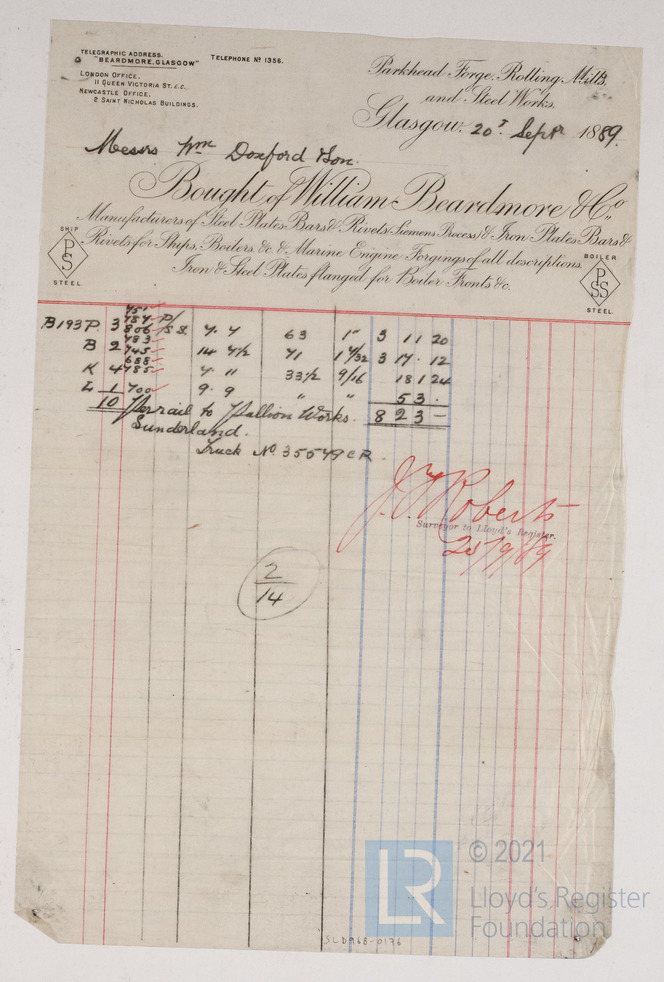 TELEGRAPHIC ADDRESS.
"BEARDMORE, GLASGOW"
TELEPHONE Nº 1356.
LONDON OFFICE.
11 QUEEN VICTORIA ST. E.C.
NEWCASTLE OFFICE.
2 SAINT NICHOLAS BUILDINGS.
Parkhead Forge, Rolling Mills,
and Steel Works.
Glasgow, 20th Septr 1889.
Messrs Wm Doxford & Son.
Bought of William Beardmore & Co.,
Manufacturers of Steel Plates Bars & Rivets (Siemens Process) & Iron Plates Bars &
Rivets for Ships, Boilers, &c. & Marine Engine Forgings of all descriptions.
Iron & Steel Plates flanged for Boiler Fronts &c.
SHIP
PSS
STEEL
BOILER
PSS
STEEL.
751
757
B193 P. 3 806 P/SS. 7. 7 63 1" 3 11 20
783
B 2 745 14 4½ 71 1 3 17 12
688
K 4 785 7 " 33½ 9/16 18 1 24
L 1 700 9. 9 " " 53.
10 Per rail to Pallion Works. 8 2 3 -
Sunderland.
Truck No. 35079 CR.
J. Roberts
Surveyor to Lloyd's Register.
20/9/89
2
14
SLD968-0176
© 2021
LR
Lloyd's Register
Foundation